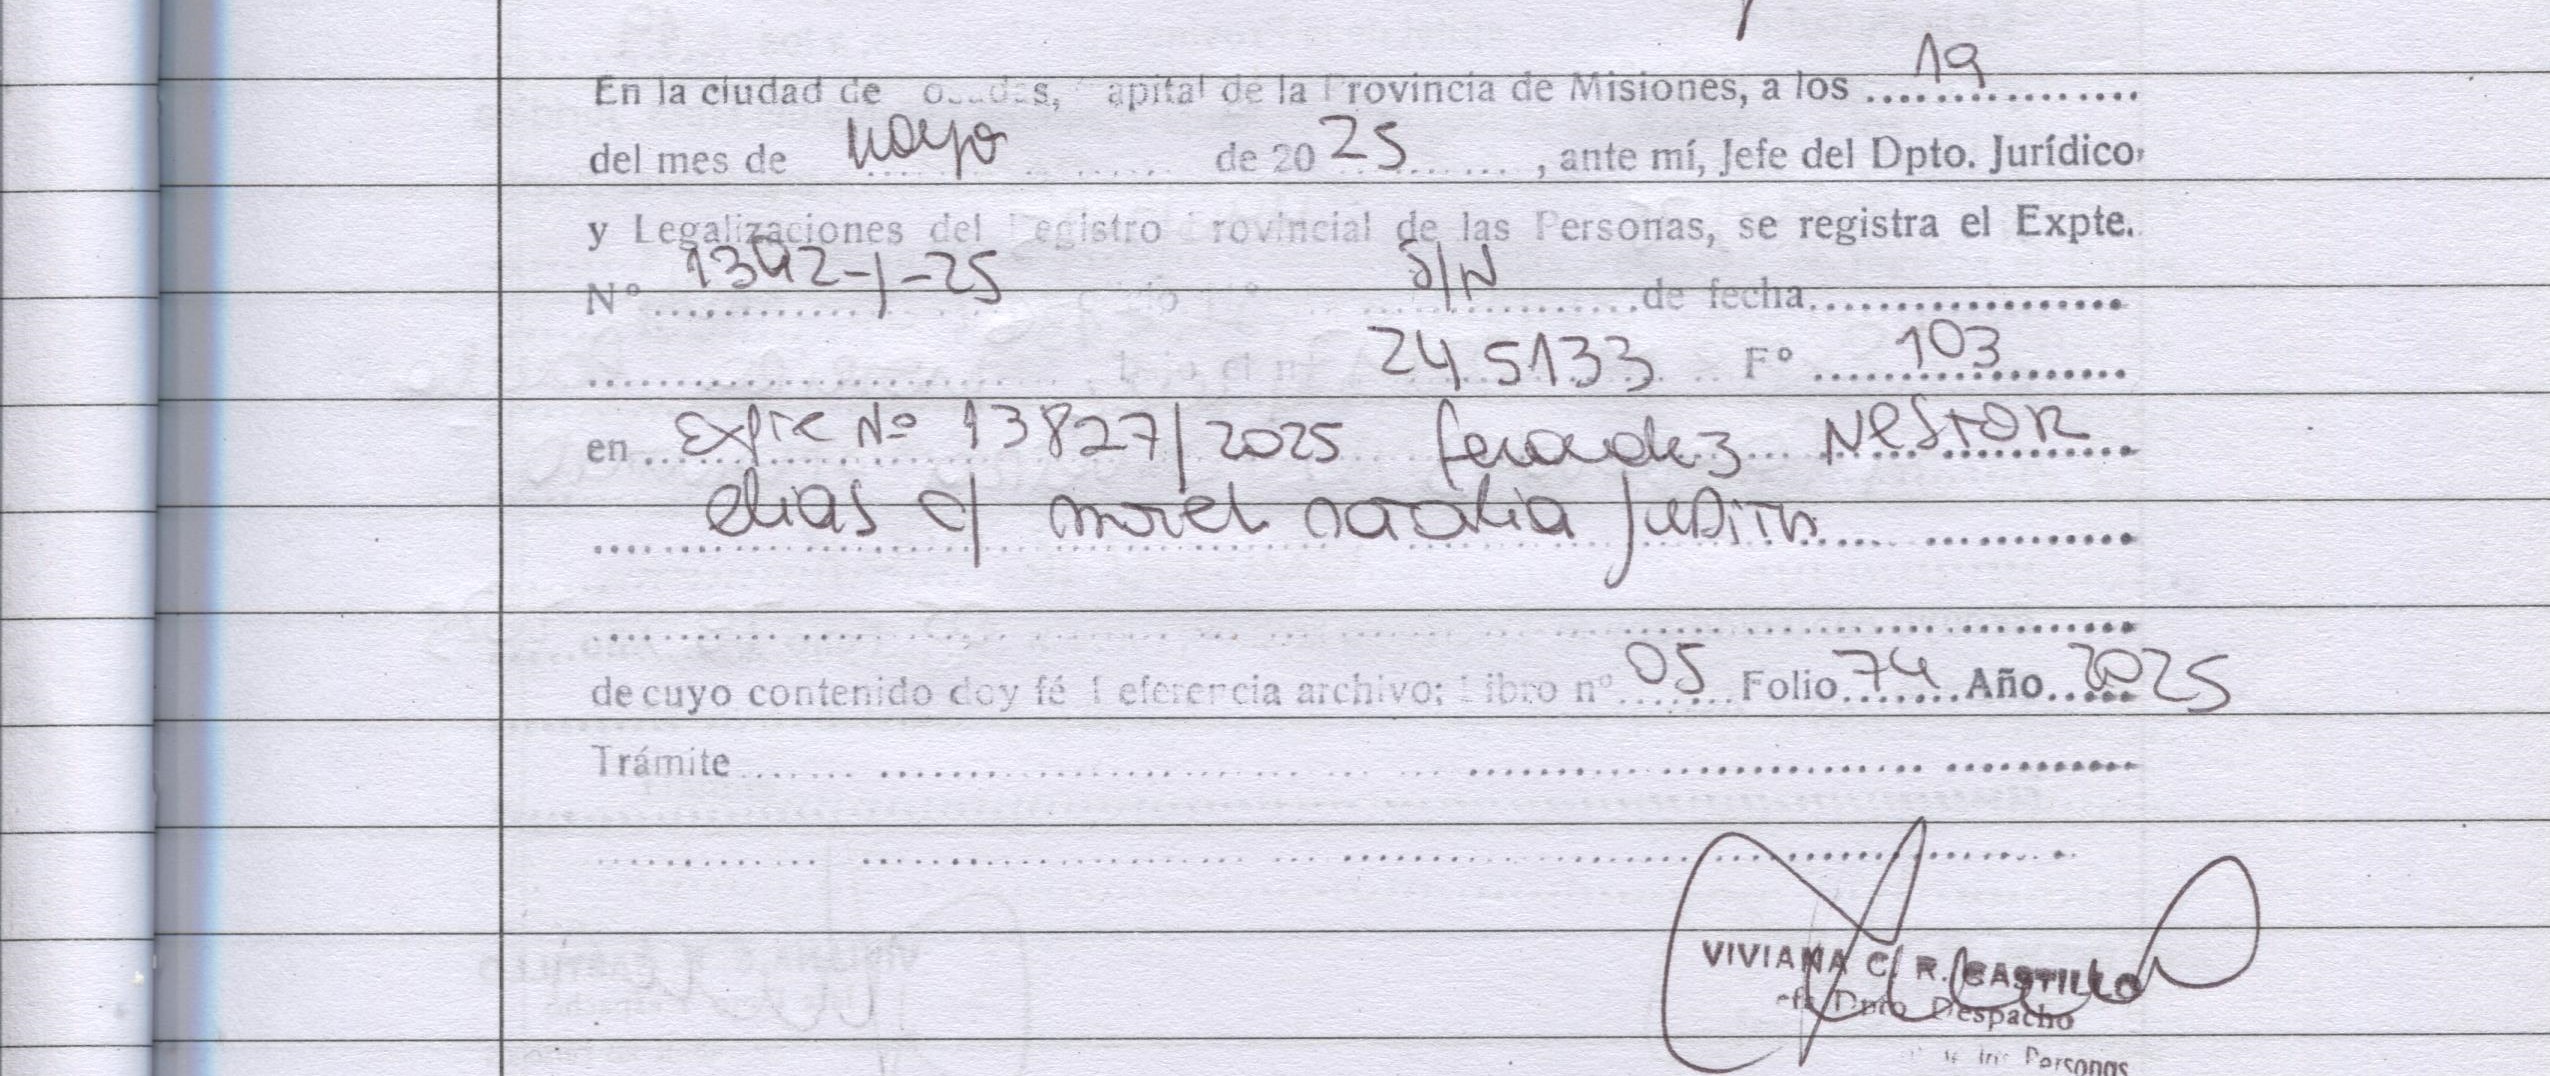 En la ciudad de Posadas, Capital de la Provincia de Misiones, a los 19
del mes de mayo de 20 25, ante mí, Jefe del Dpto. Jurídico
y Legalizaciones del Registro Provincial de las Personas, se registra el Expte.
Nº 1342-J-25 Oficio Nº S/N de fecha
bajo el nº 245133 Fº 103
en Expte Nº 13827/2025 Fernandez Nestor
elias c/ morel natalia Judith
de cuyo contenido doy fé Referencia archivo: Libro nº 05 Folio 74 Año 2025
Trámite
VIVIANA C. R. CASTILLO
Jefe Dpto Despacho
de las Personas